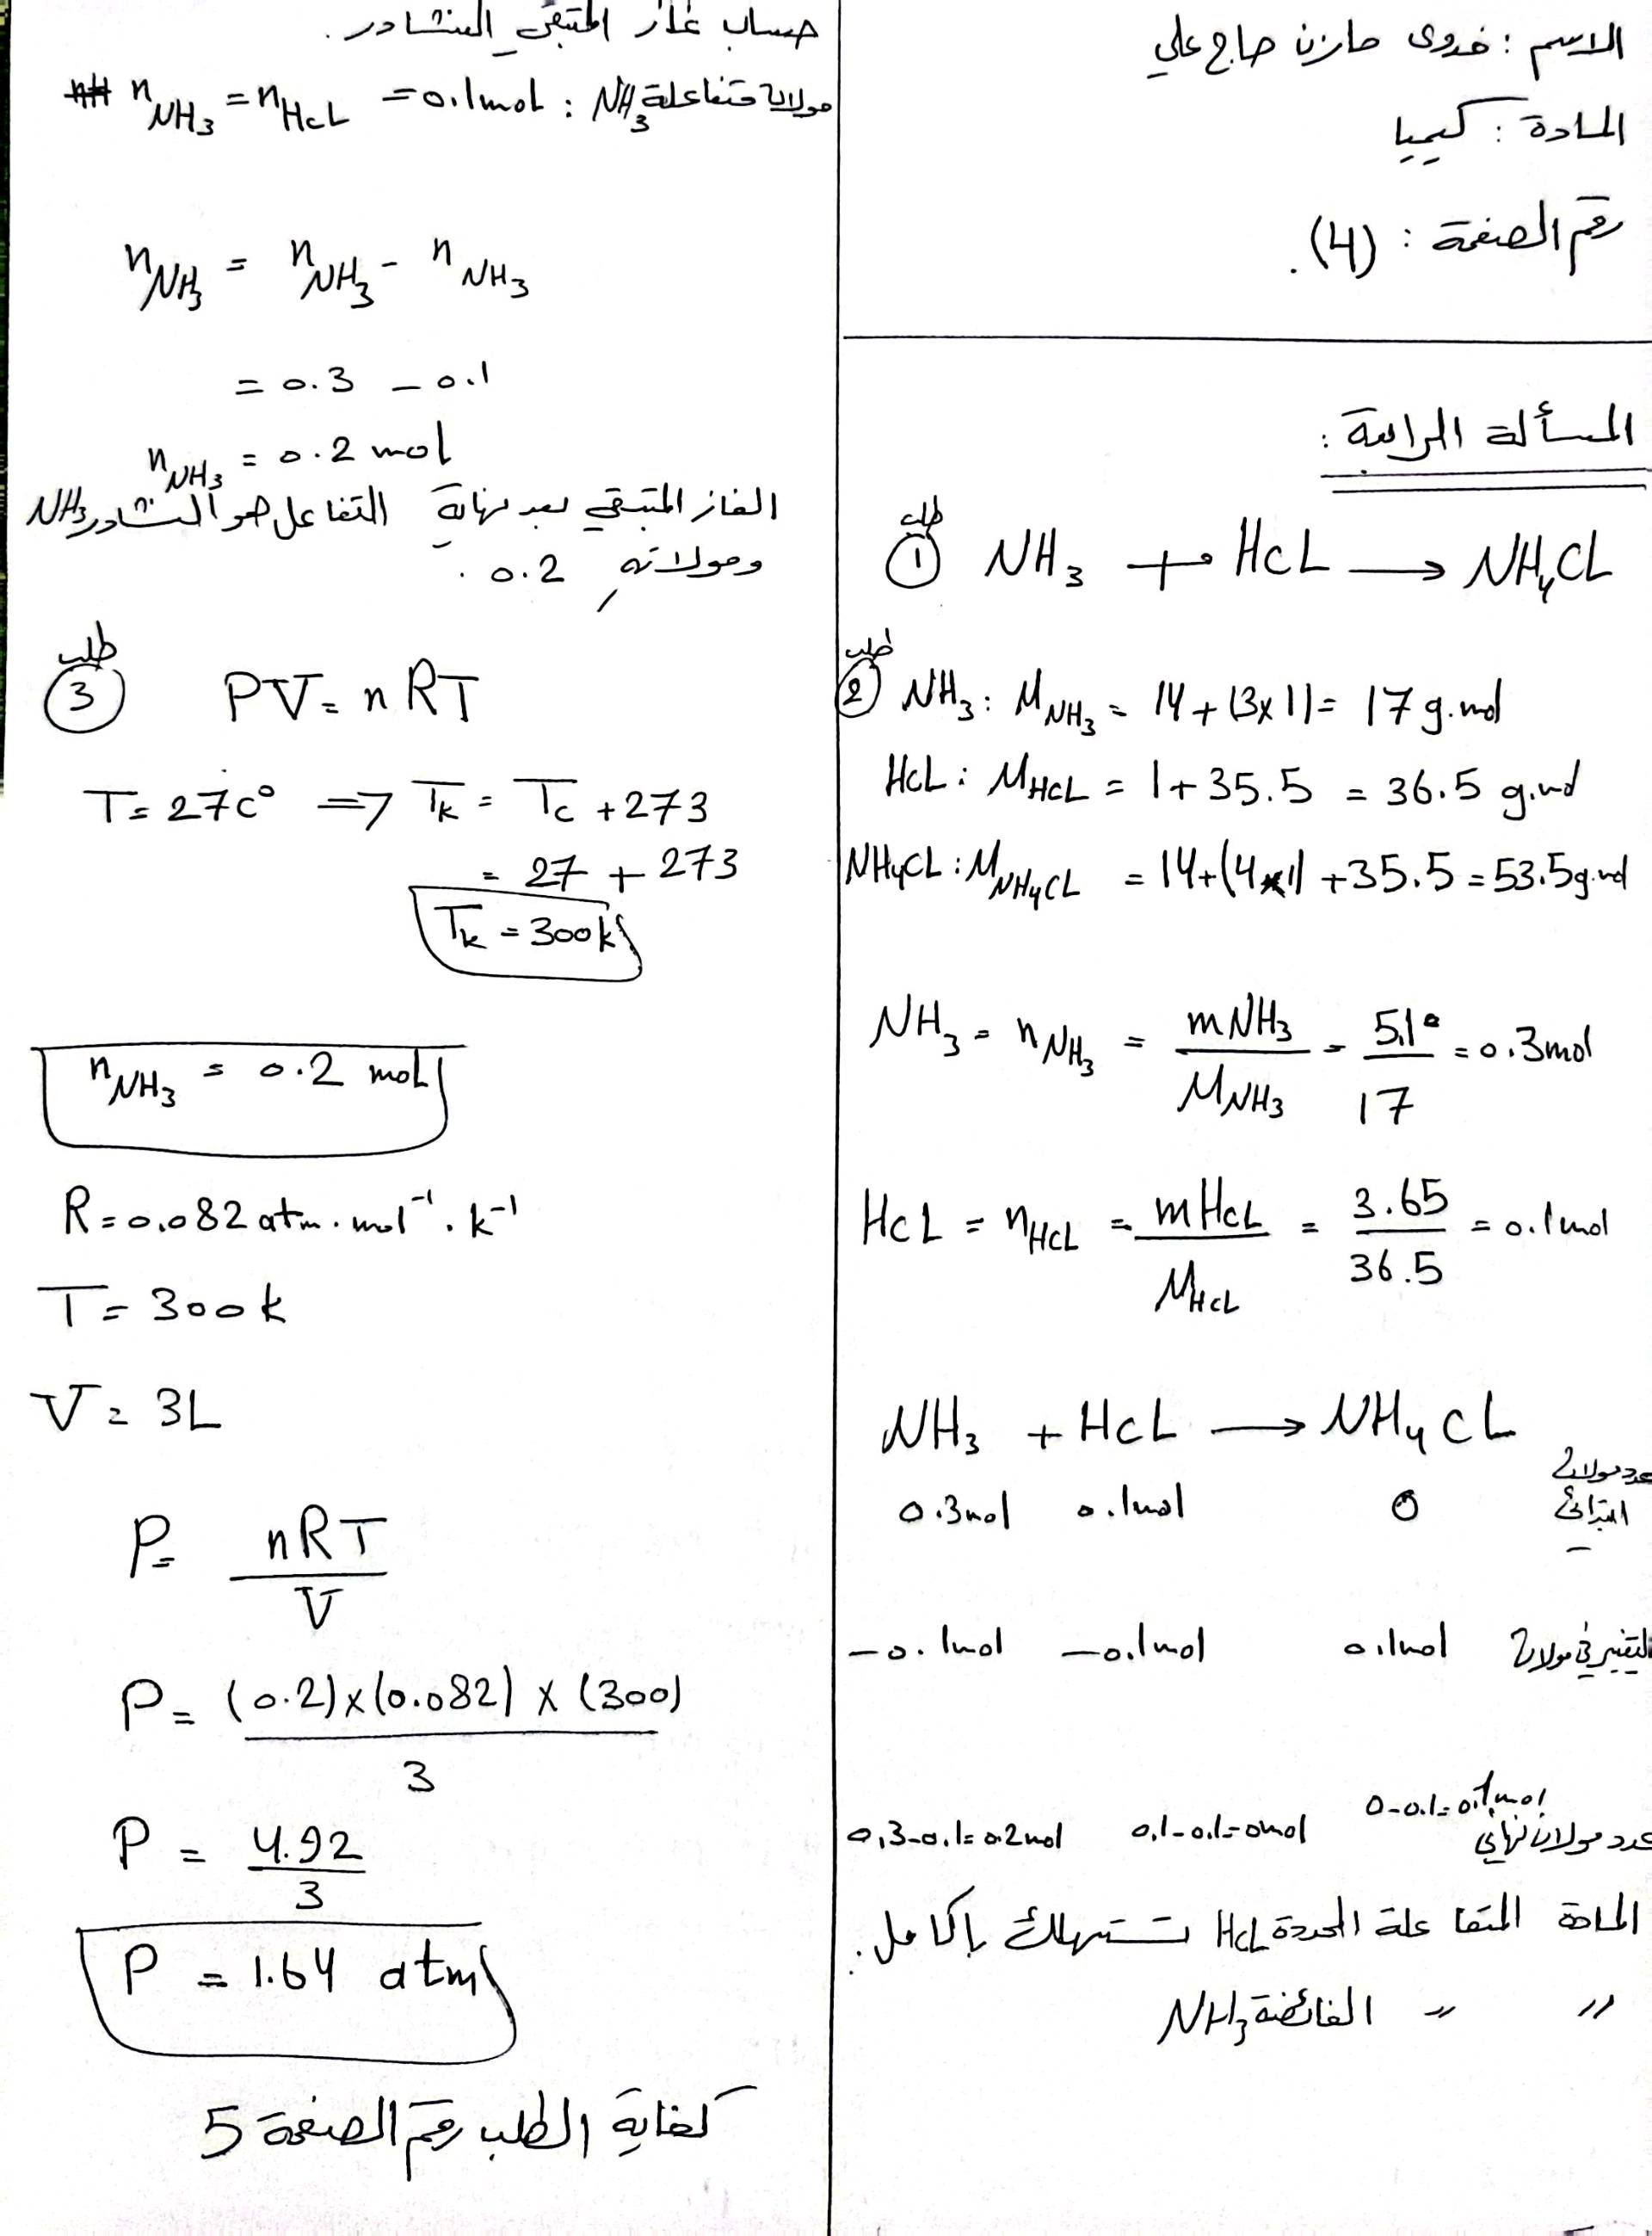 الاسم : فدوى مازن حاج علي
المادة : كيميا
رقم الصفحة : (4).
المسألة الرابعة :
طلب
① NH₃ + HcL → NH₄CL
طلب
② NH₃ : M NH₃ = 14 + (3x1) = 17 g.mol
HcL : M HcL = 1 + 35.5 = 36.5 g.mol
NH₄CL : M NH₄CL = 14+(4x1) +35.5 = 53.5 g.mol
NH₃ = n NH₃ = mNH₃ / M NH₃ = 5.1 / 17 = 0.3 mol
HcL = n HcL = mHcL / M HcL = 3.65 / 36.5 = 0.1 mol
NH₃ + HcL → NH₄CL
0.3mol 0.1mol 0 عدد مولات ابتدائي
-0.1mol -0.1mol 0.1mol التغير في مولات
0.3-0.1=0.2mol 0.1-0.1=0mol 0-0.1=0.1mol عدد مولات نهائي
المادة المتفاعلة المحددة HcL تستهلك بالكامل .
〃 〃 الفائضة NH₃
حساب غاز المتبقي النشادر .
مولات متفاعلة NH₃ : n NH₃ = n HcL = 0.1mol
n NH₃ = n NH₃ - n NH₃
= 0.3 - 0.1
n NH₃ = 0.2 mol
الغاز المتبقي بعد نهاية التفاعل هو النشادر NH₃
ومولاته 0.2 .
طلب
③ PV = nRT
T = 27 c° => Tk = Tc + 273
= 27 + 273
Tk = 300k
n NH₃ = 0.2 mol
R = 0.082 atm . mol⁻¹ . k⁻¹
T = 300k
V = 3L
P = nRT / V
P = (0.2)x(0.082) x (300) / 3
P = 4.92 / 3
P = 1.64 atm
كفاية الطلب رقم الصفحة 5